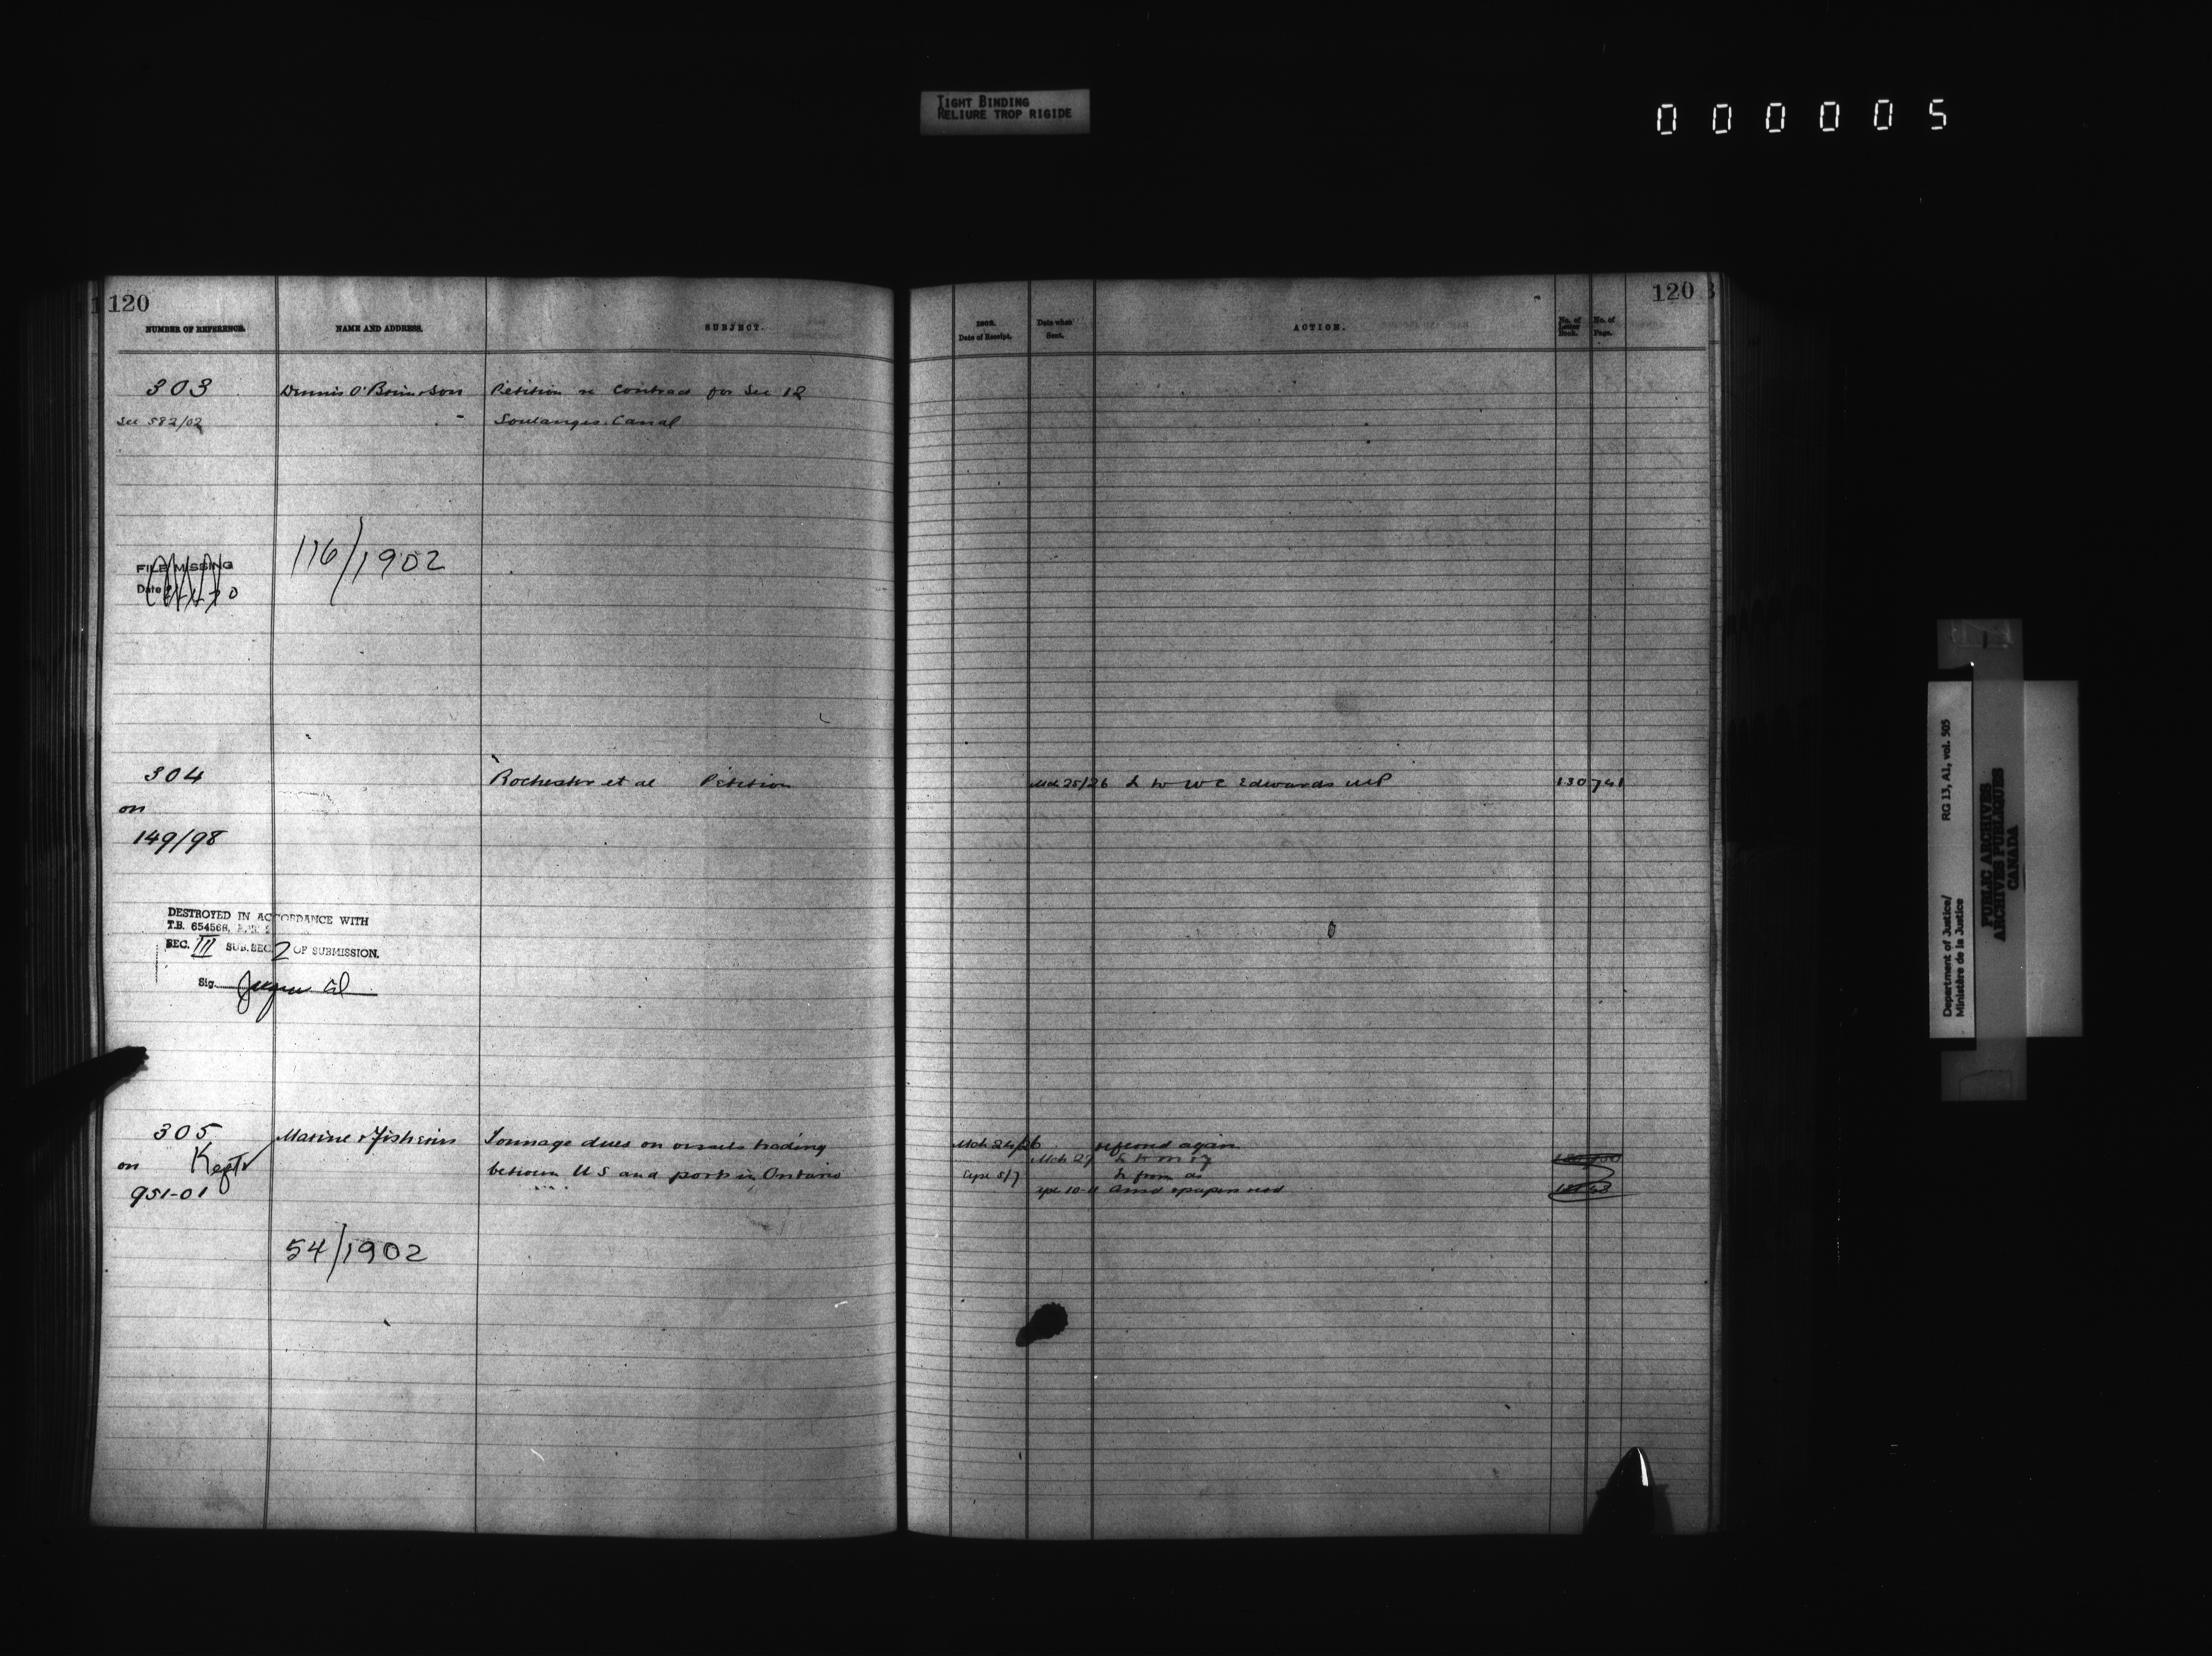 TIGHT BINDING
RELIURE TROP RIGIDE
000005
120
NUMBER OF REFERENCE.
NAME AND ADDRESS.
SUBJECT.
303
Dennis O'Brien & Son
Petition re Contract for Sec 12
See 582/02
Soulanges Canal
FILE MISSING
Date
116/1902
304
Rochester et al Petition
on
149/98
DESTROYED IN ACCORDANCE WITH
T.B. 654568,
SEC. III SUB.SEC. 2 OF SUBMISSION.
Sig.
305
Marine & Fisheries
Tonnage dues on vessels trading
on Kept
between U S and ports in Ontario
951-01
54/1902
120
1902.
Date of Receipt.
Date when
Sent.
ACTION.
No. of
Letter
Book.
No. of
Page.
Mch 25/26 L to W C Edwards MP 130 741
Mch 24/26 referred again
Mch 27 L to M & F
Apr 5/7 L from do
Apr 10-11 Ansd & papers retd
Department of Justice/
Ministère de la Justice
RG 13, A1, vol. 505
PUBLIC ARCHIVES
ARCHIVES PUBLIQUES
CANADA